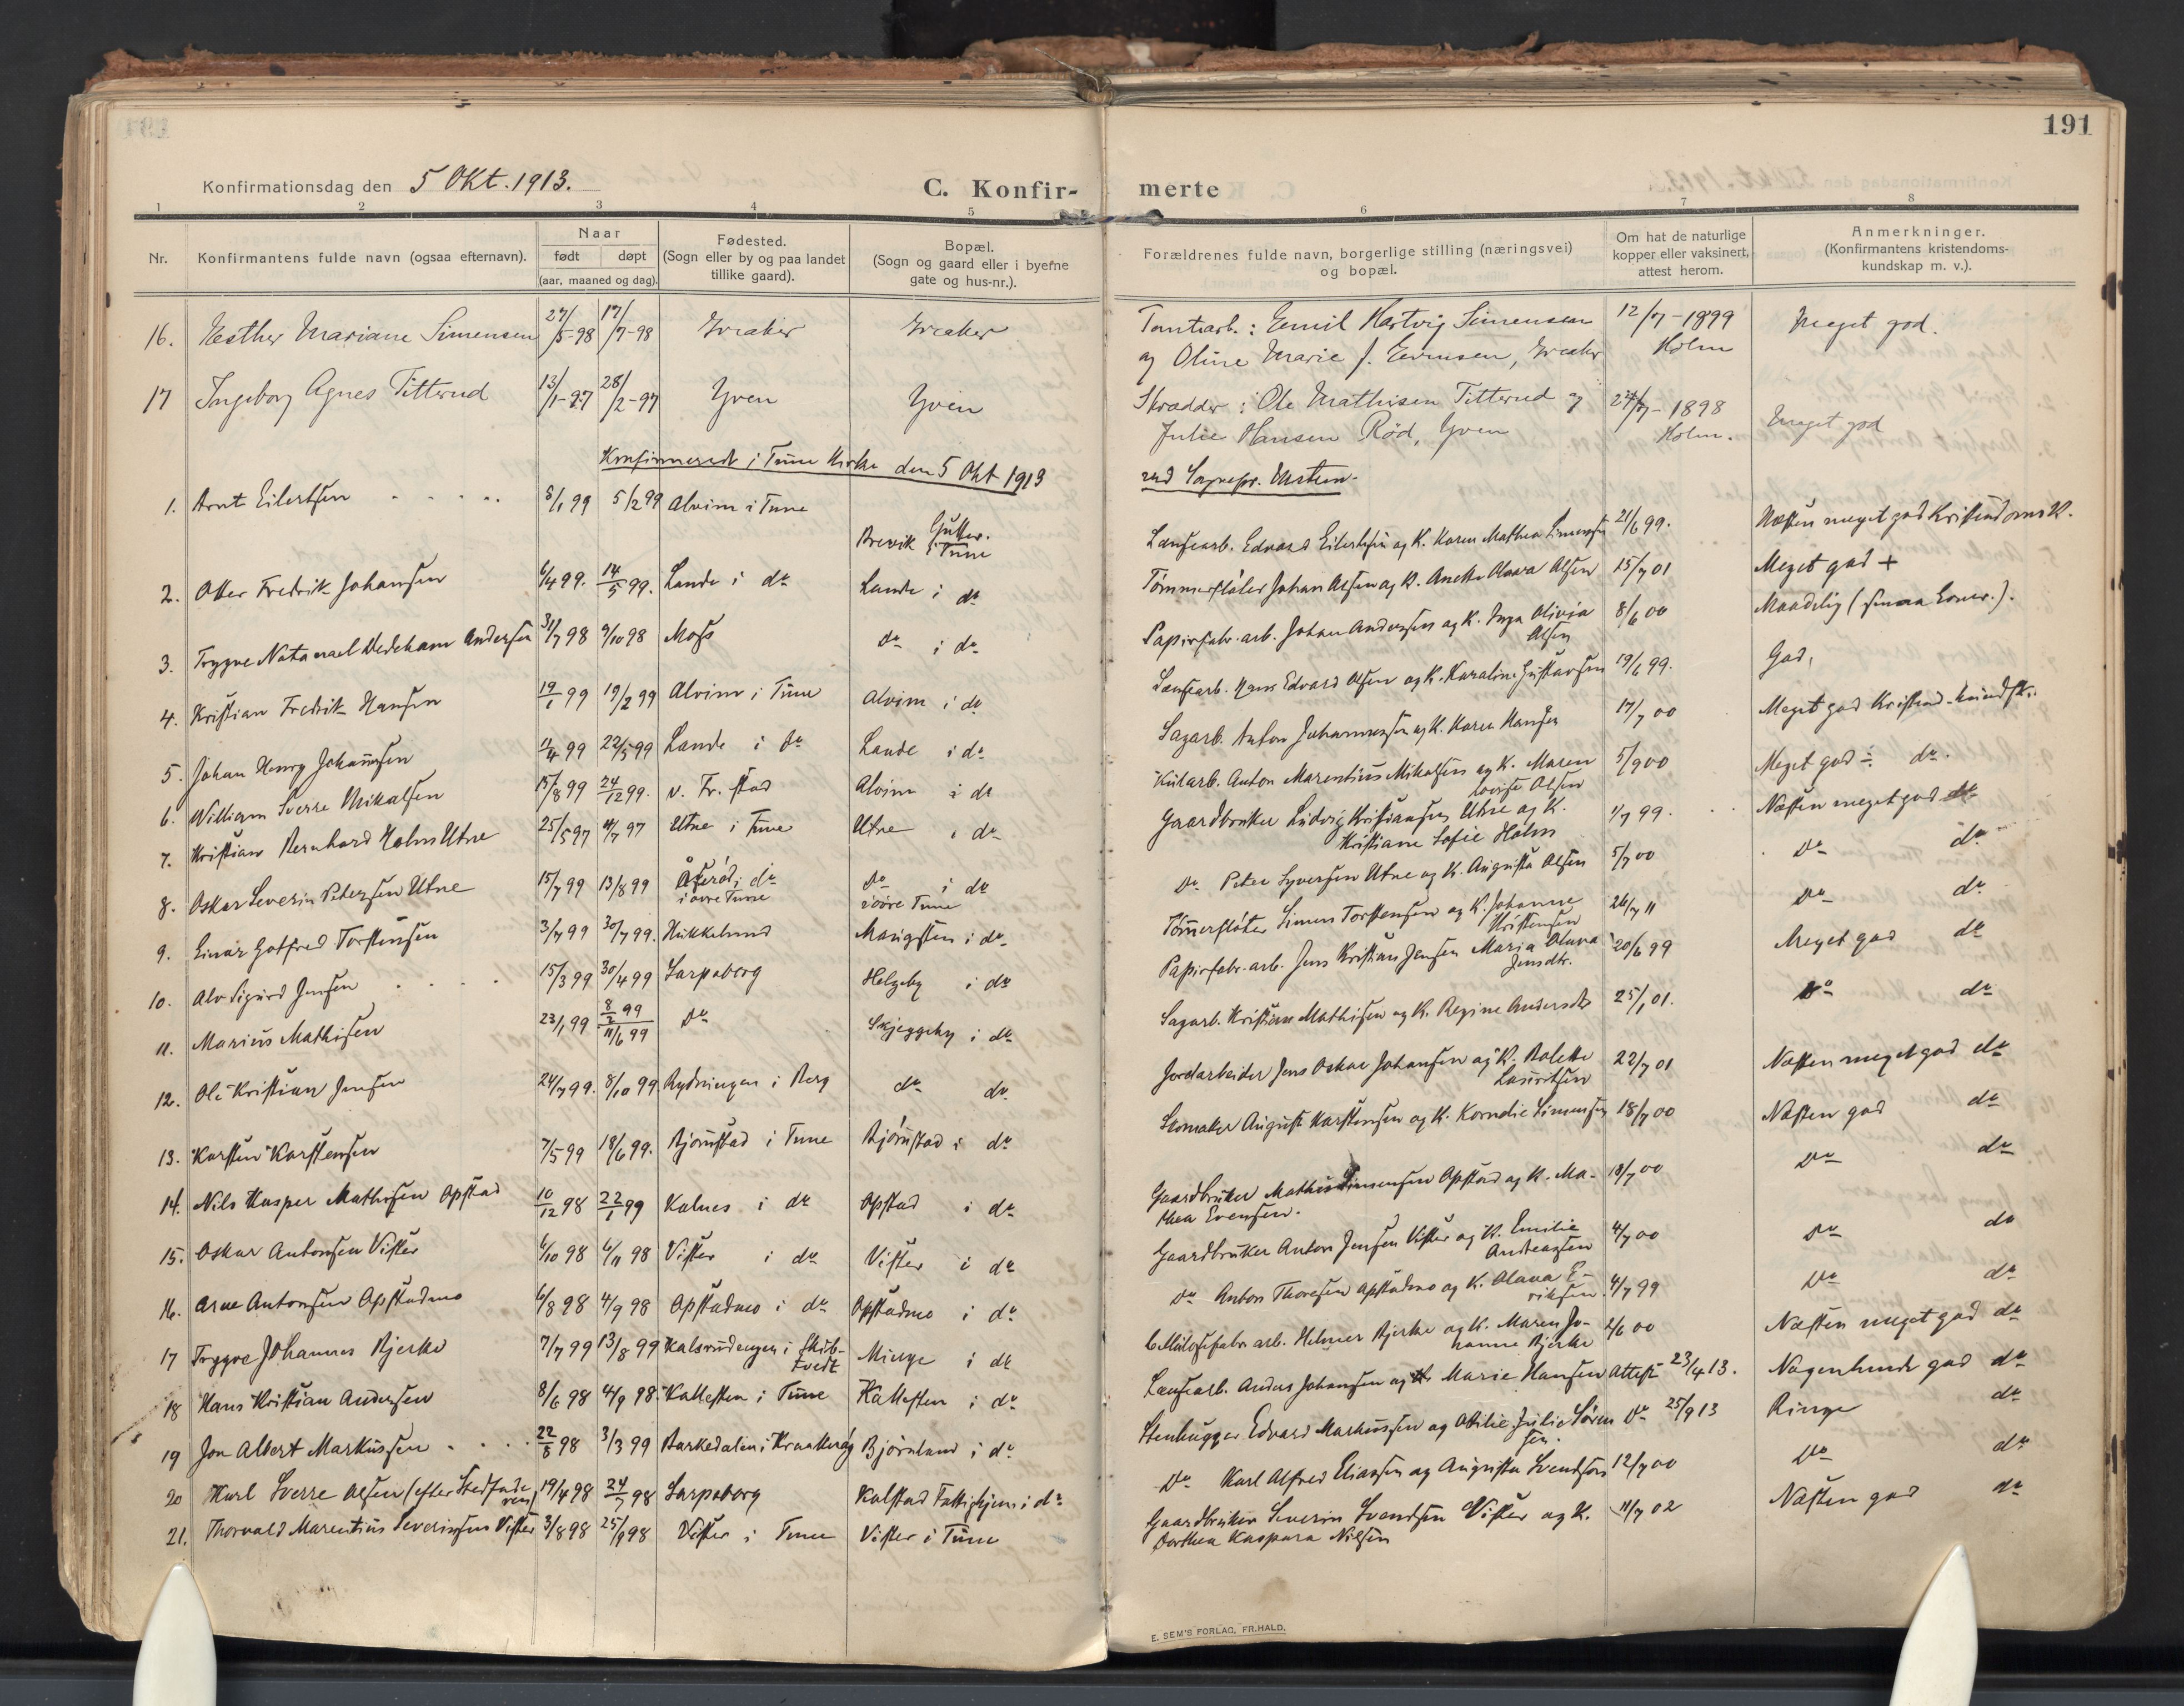 191
Konfirmationsdag den 5 Okt. 1913.
C. Konfir-
merte
1 2 3 4 5 6 7 8
Nr.
Konfirmantens fulde navn (ogsaa efternavn).
Naar
født døpt
(aar, maaned og dag).
Fødested.
(Sogn eller by og paa landet
tillike gaard).
Bopæl.
(Sogn og gaard eller i byerne
gate og hus-nr.).
Forældrenes fulde navn, borgerlige stilling (næringsvei)
og bopæl.
Om hat de naturlige
kopper eller vaksinert,
attest herom.
Anmerkninger.
(Konfirmantens kristendoms-
kundskap m. v.).
16. Esther Mariane Simensen 27/5-98 17/7-98 Greaker Greaker Tomtearb.: Emil Hartvig Simensen 12/7-1899 Meget god.
og Oline Marie f. Evensen, Greaker Holm
17 Ingeborg Agnes Titterud 13/1-97 28/2-97 Yven Yven Skrædder: Ole Mathisen Titterud og 27/7-1898 Meget god
Julie Hansen Rød, Yven Holm.
Konfirmeret i Tune Kirke den 5 Okt 1913
ved Sognepr.
Gutter.
1. Arnt Eilertsen 5/2 99 Alvim i Tune Brevik i Tune Lensearb. Edvard Eilertsen og K. Karen Mathea Simensen 21/6 99. Næsten meget god Kristendomsk.
2. Otter Fredrik Johansen 6/4 99. 14/5 99. Lande i do Lande i do Tømmerfløter Johan Olsen og K. Anette Olava Olsen 15/7 01 Meget god +
3. Trygve Natanael Andersen 31/7 98 9/10 98 Moss do i do Papirfabr. arb. Johan Andersen og K. Inga Olivia 8/6 00 Maadelig
Olsen
4. Kristian Fredrik Hansen 19/1 99 19/2 99 Alvim i Tune Alvim i do Lensearb. Hans Edvard Olsen og K. Karoline Gustavsen 19/6 99. God,
5. Johan Henry Johannsen 11/4 99 22/5 99 Lande i do Lande i do Sagarb. Anton Johannessen og K. Karen Hansen 17/7 00 Meget god Kristend. kundsk.
6. William Sverre Mikalsen 15/8 99 24/12 99. v. Fr. stad Alvim i do Anton Marentius Mikalsen og K. Maren 5/9 00 Meget god ÷ do.
Lovise Olsen
7. Kristian Bernhard Holm Utne 25/5 97 4/7 97 Utne i Tune Utne i do Gaardbruker Ludvig Kristiansen Utne og K. 1/7 99. Næsten meget god do
Kristiane Sofie Holm
8. Oskar Severin Petersen Utne 15/7 99 13/8 99 i do do i do Do Peter Syversen Utne og K. Augusta Olsen 5/7 00 Do do
i øvre Tune i øvre Tune
9. Einar Gotfred Torstensen 3/7 99 30/7 99. Hukkelund i do Tømmerfløter Simen Torstensen og K. Johanne 26/7 11 Do do
Kristensen
10. Alv Sigurd Jensen 15/3 99 30/4 99 Sarpsborg Helgeby i do Papirfabr. arb. Jens Kristian Jensen Maria Olava 20/6 99 Meget god do
Jensdtr.
11. Marius Mathisen 23/1 99 8/2 99 Do Skjeggeby i do Sagarb. Kristian Mathisen og K. Regine Andersdtr 25/1 01. Do do
11/6 99
12. Ole Kristian Jensen 24/7 99. 8/10 99 Rydningen i Berg do do Jordarbeider Jens Oskar Johansen og K. Bolette 22/7 01 Næsten meget god do
Lauritsen
13. Karsten Karstensen 7/5 99 18/6 99. Bjørnstad i Tune Bjørnstad i do Skomaker August Karstensen og K. Kornelie Simensen 18/7 00 Næsten god do
14. Nils Kasper Mathisen Opstad 10/12 98 22/1 99 Kalnes i do Opstad i do Gaardbruker Mathis Simensen Opstad og K. Ma- 18/7 00 Do do
thea Evensen.
15. Oskar Antonsen Vister 6/10 98 6/11 98 Vister i do Vister i do Gaardbruker Anton Jensen Vister og K. Emilie 4/7 00 Do do
Andreassen
16. Arne Antonsen Opstadmo 6/8 98 4/9 98 Opstadmo i do Opstadmo i do Do Anton Thoresen Opstadmo og K. Olava E- 4/7 99 Do do
riksen.
17 Trygve Johannes Bjerke 7/7 99 13/8 99 Kalsrudengen i Skib- Minge i do Cellulosefabr. arb. Helmer Bjerke og K. Maren Jo- 2/6 00 Næsten meget god do
tvedt hanne Bjerke
18 Hans Kristian Andersen 8/6 98 4/9 98. Kattesten i Tune Kattesten i do Lensearb. Anders Johansen og Marie Hansen Attest 23/4 13. Nogenlunde god do
19 Jon Albert Markussen 22/8 98 3/3 99 Barkedalen i Kraakerøy Bjørnland i do Stenhugger Edvard Markussen og Otilie Julie Søren Do 25/9 13 Ringe do
sen.
20 Karl Sverre Olsen (efter Stedfade- 19/4 98 24/7 98 Sarpsborg Kalstad Fattighjem i do Do Karl Alfred Eliassen og Augusta Svendsen 12/7 00 Do do
ren)
21. Thorvald Marentius Severinsen Vister 3/8 98 25/9 98 Vister i Tune Vister i Tune Gaardbruker Severin Svendsen Vister og K. 11/7 02 Næsten god do
Dorthea Kaspara Nilsen
E. SEM'S FORLAG, FR.HALD.